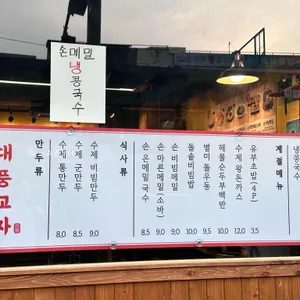 손메밀
냉콩국수
대풍교자
만두류
수제 통만두 8.0
수제 군만두 8.5
수제 비빔만두 9.0
식사류
손 온메밀 국수 8.5
손 마른메밀 (소바) 9.0
손 비빔메밀 9.0
돌솥비빔밥 9.5
별미 돌우동 9.5
해물순두부백반 10.0
수제 왕돈까스 12.0
유부초밥 (4P) 3.5
계절메뉴
냉콩국수